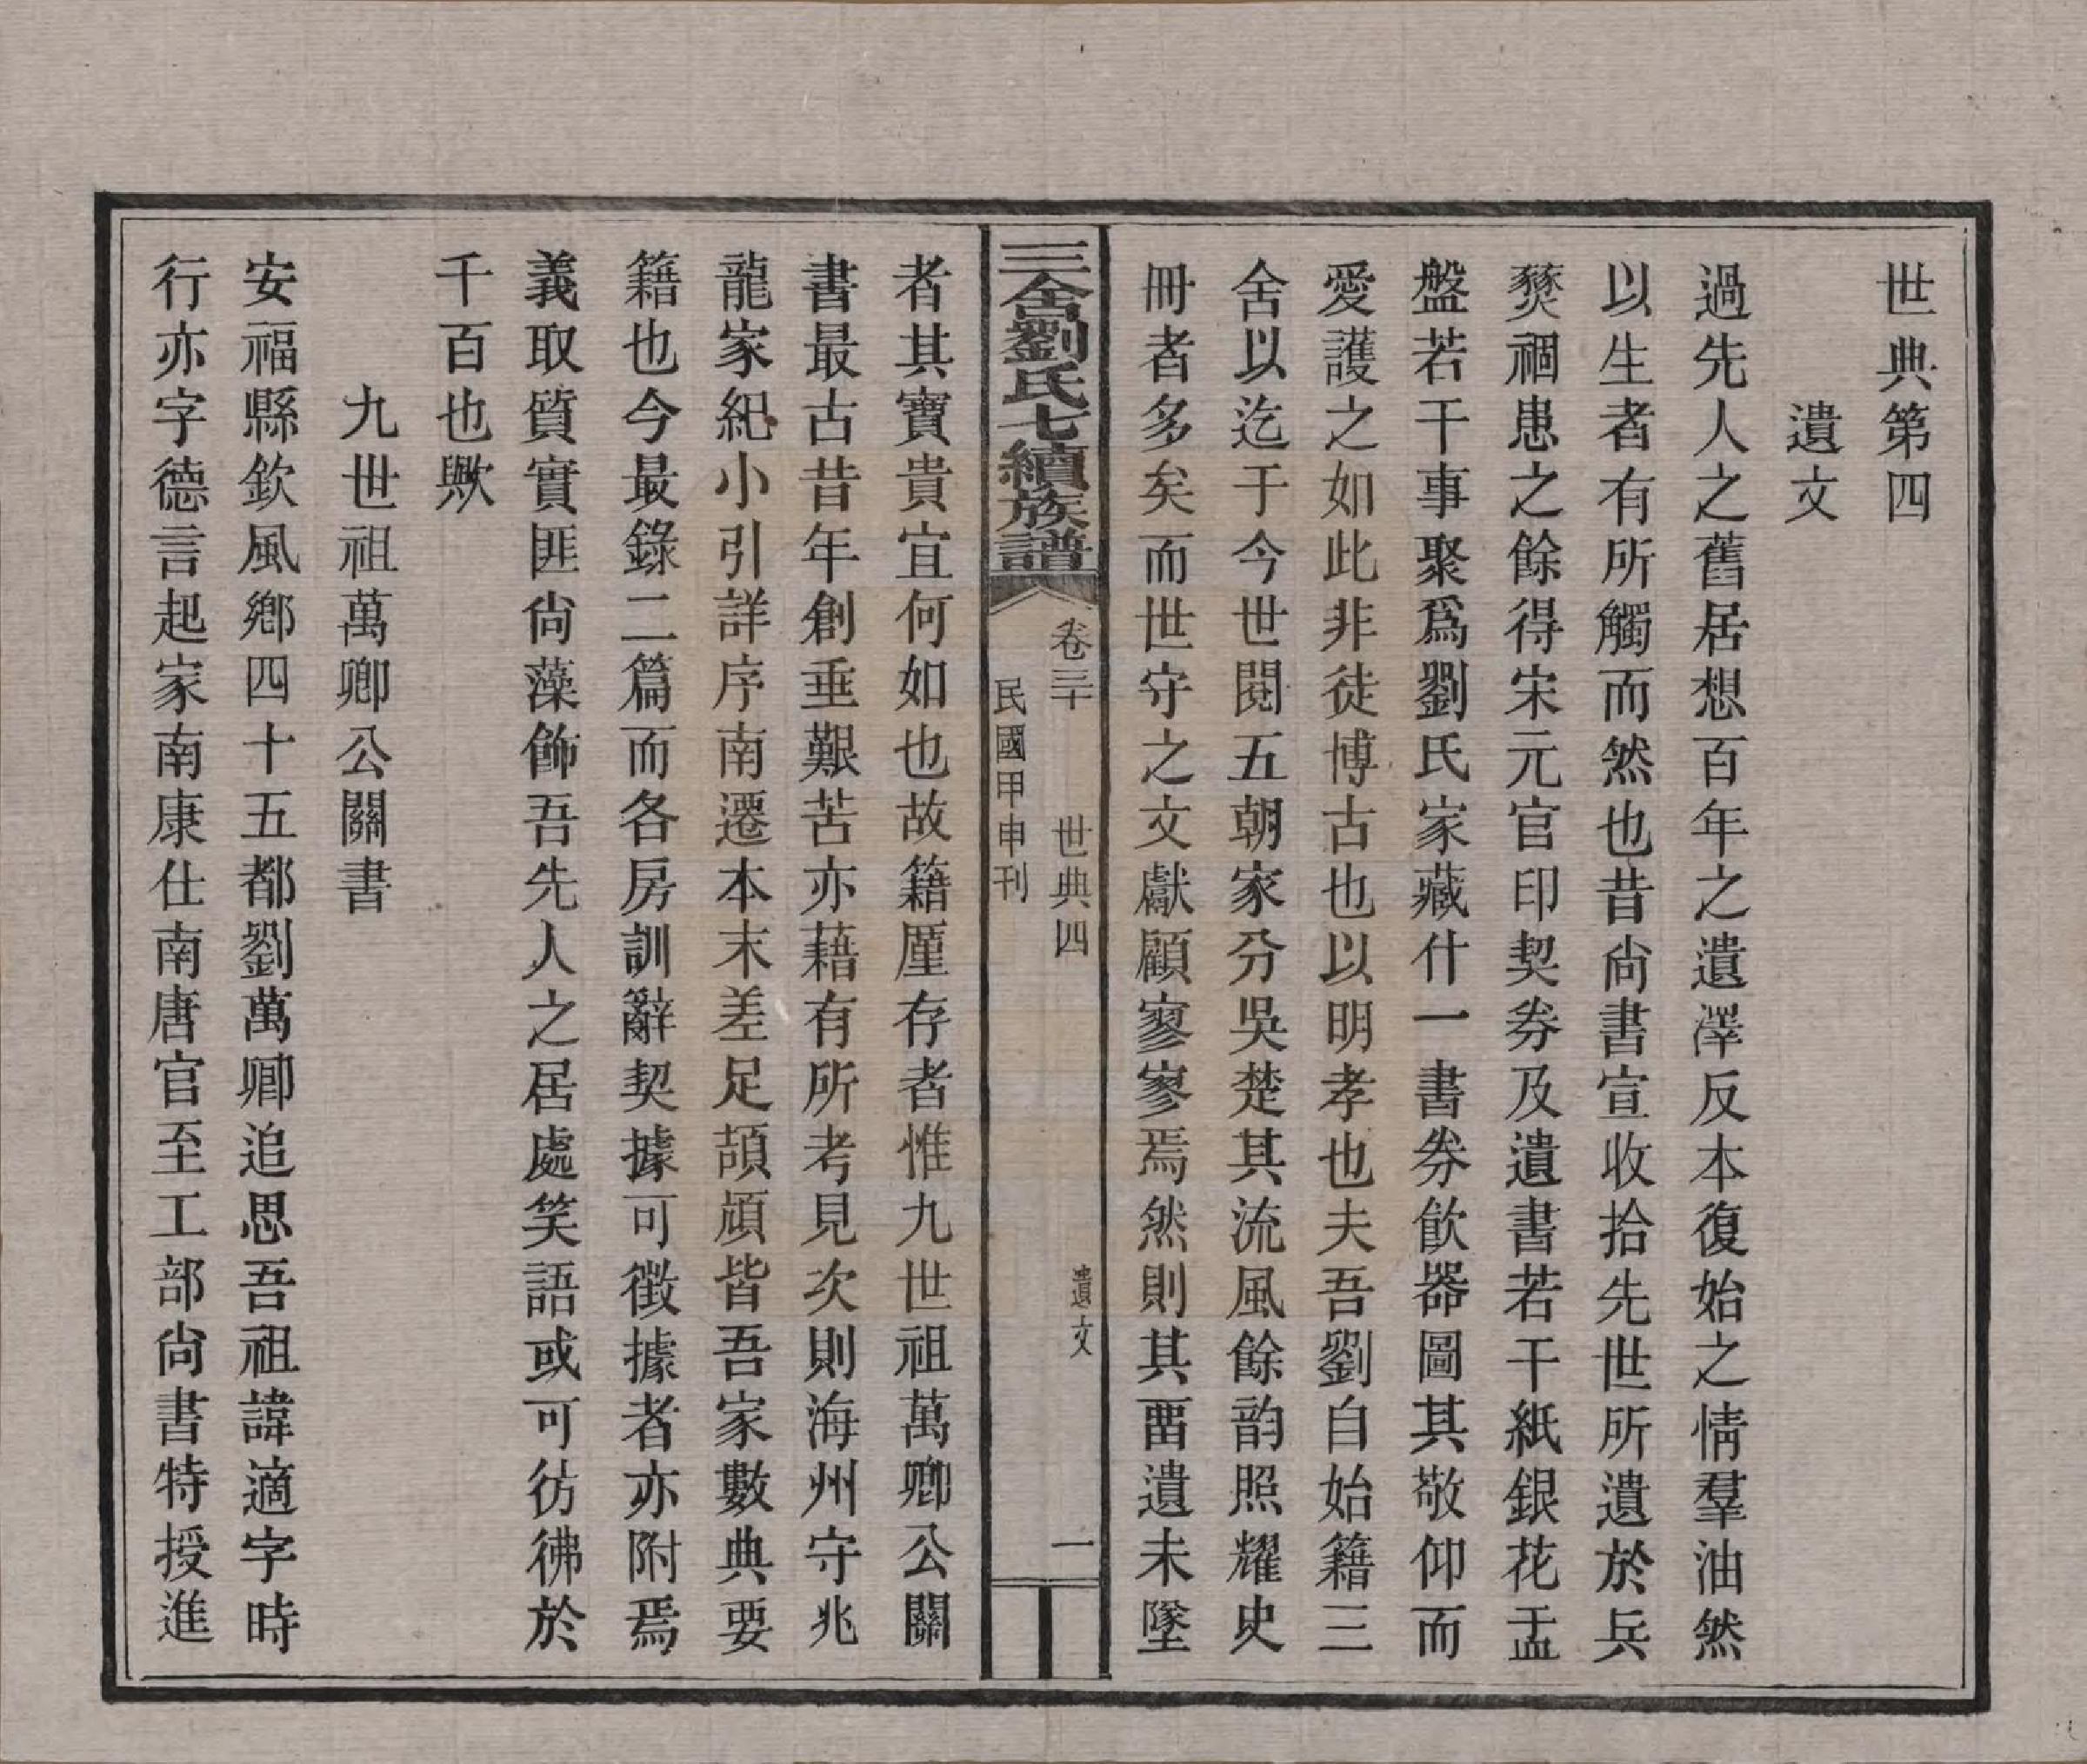 世典第四
遺文
過先人之舊居想百年之遺澤反本復始之情羣油然
以生者有所觸而然也昔尚書宣收拾先世所遺於兵
燹禍患之餘得宋元官印契券及遺書若干紙銀花盂
盤若干事聚爲劉氏家藏什一書券飮器圖其敬仰而
愛護之如此非徒博古也以明孝也夫吾劉自始籍三
舍以迄于今世閱五朝家分吳楚其流風餘韵照耀史
冊者多矣而世守之文獻顧寥寥焉然則其畱遺未墜
三舍劉氏七續族譜
卷三十 世典四 遺文 一
民國甲申刊
者其寶貴宜何如也故籍厪存者惟九世祖萬卿公關
書最古昔年創垂艱苦亦藉有所考見次則海州守兆
龍家紀小引詳序南遷本末差足頡頏皆吾家數典要
籍也今最錄二篇而各房訓辭契據可徵據者亦附焉
義取質實匪尚藻飾吾先人之居處笑語或可彷彿於
千百也歟
九世祖萬卿公關書
安福縣欽風鄉四十五都劉萬卿追思吾祖諱適字時
行亦字德言起家南康仕南唐官至工部尚書特授進